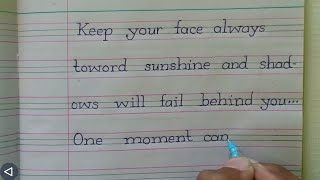 Keep your face always
toward sunshine and shad-
ows will fail behind you...
One moment can